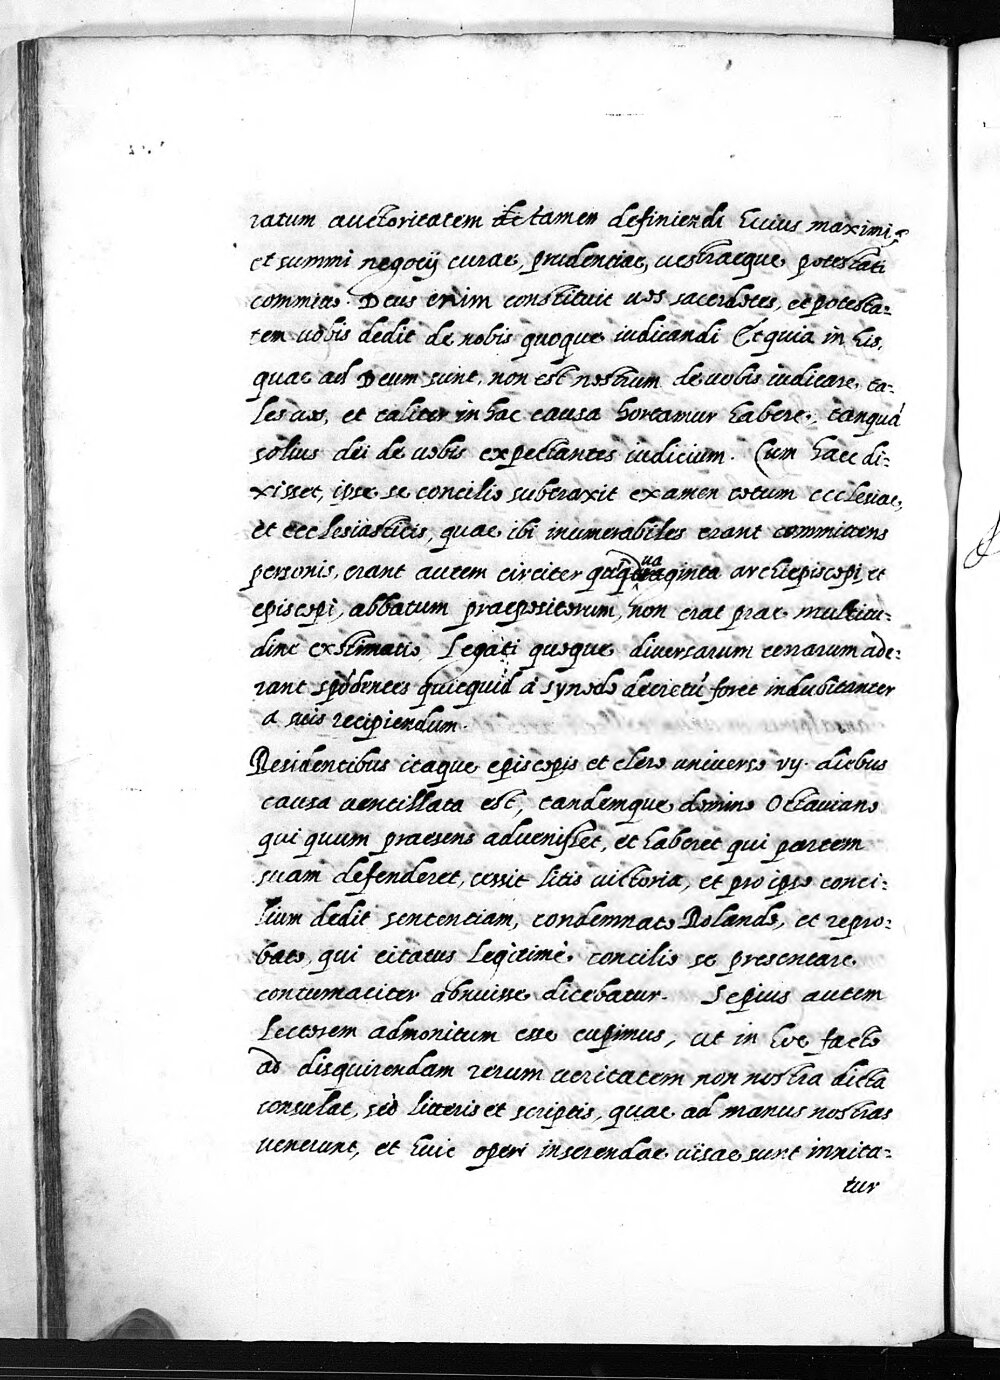 ratum auctoritatem tamen definiendi huius maximi,
et summi negocij curae, prudenciae, uestraeque potestati
committo. Deus enim constituit uos sacerdotes, et potesta=
tem uobis dedit de nobis quoque iudicandi Et quia in his,
quae ad Deum sunt, non est nostrum de uobis iudicare, ta-
les uos, et taliter in hac causa hortamur habere, tanquã
solius dei de uobis expectantes iudicium. Cum haec di-
xisset, ipse se concilio subtraxit examen totum ecclesiae,
et ecclesiasticis, quae ibi inumerabiles erant committens
personis, erant autem circiter archiepiscopi, et
episcopi, abbatum praepositorum, non erat prae multitu-
dine exstimatio, Legati quoque diversarum terrarum ade-
rant spõdentes quicquid à synodo decretũ foret indubitanter
a suis recipiendum.
Residentibus itaque episcopis et clero universo vij. diebus
causa ventillata est, tandemque domino Octaviano
qui quum praesens advenisset, et haberet qui partem
suam defenderet, cessit litis victoria, et pro ipso conci-
lium dedit sentenciam, condemnato Rolando, et repro-
bato, qui citatus Legitimè concilio se presentare
contumaciter abnuisse dicebatur. Sepius autem
Lectorem admonitum esse cupimus, ut in hoc facto
ad disquirendam rerum veritatem non nostra dicta
consulat, sed litteris et scriptis, quae ad manus nostras
venerunt, et huic operi inserendae visae sunt innita-
tur